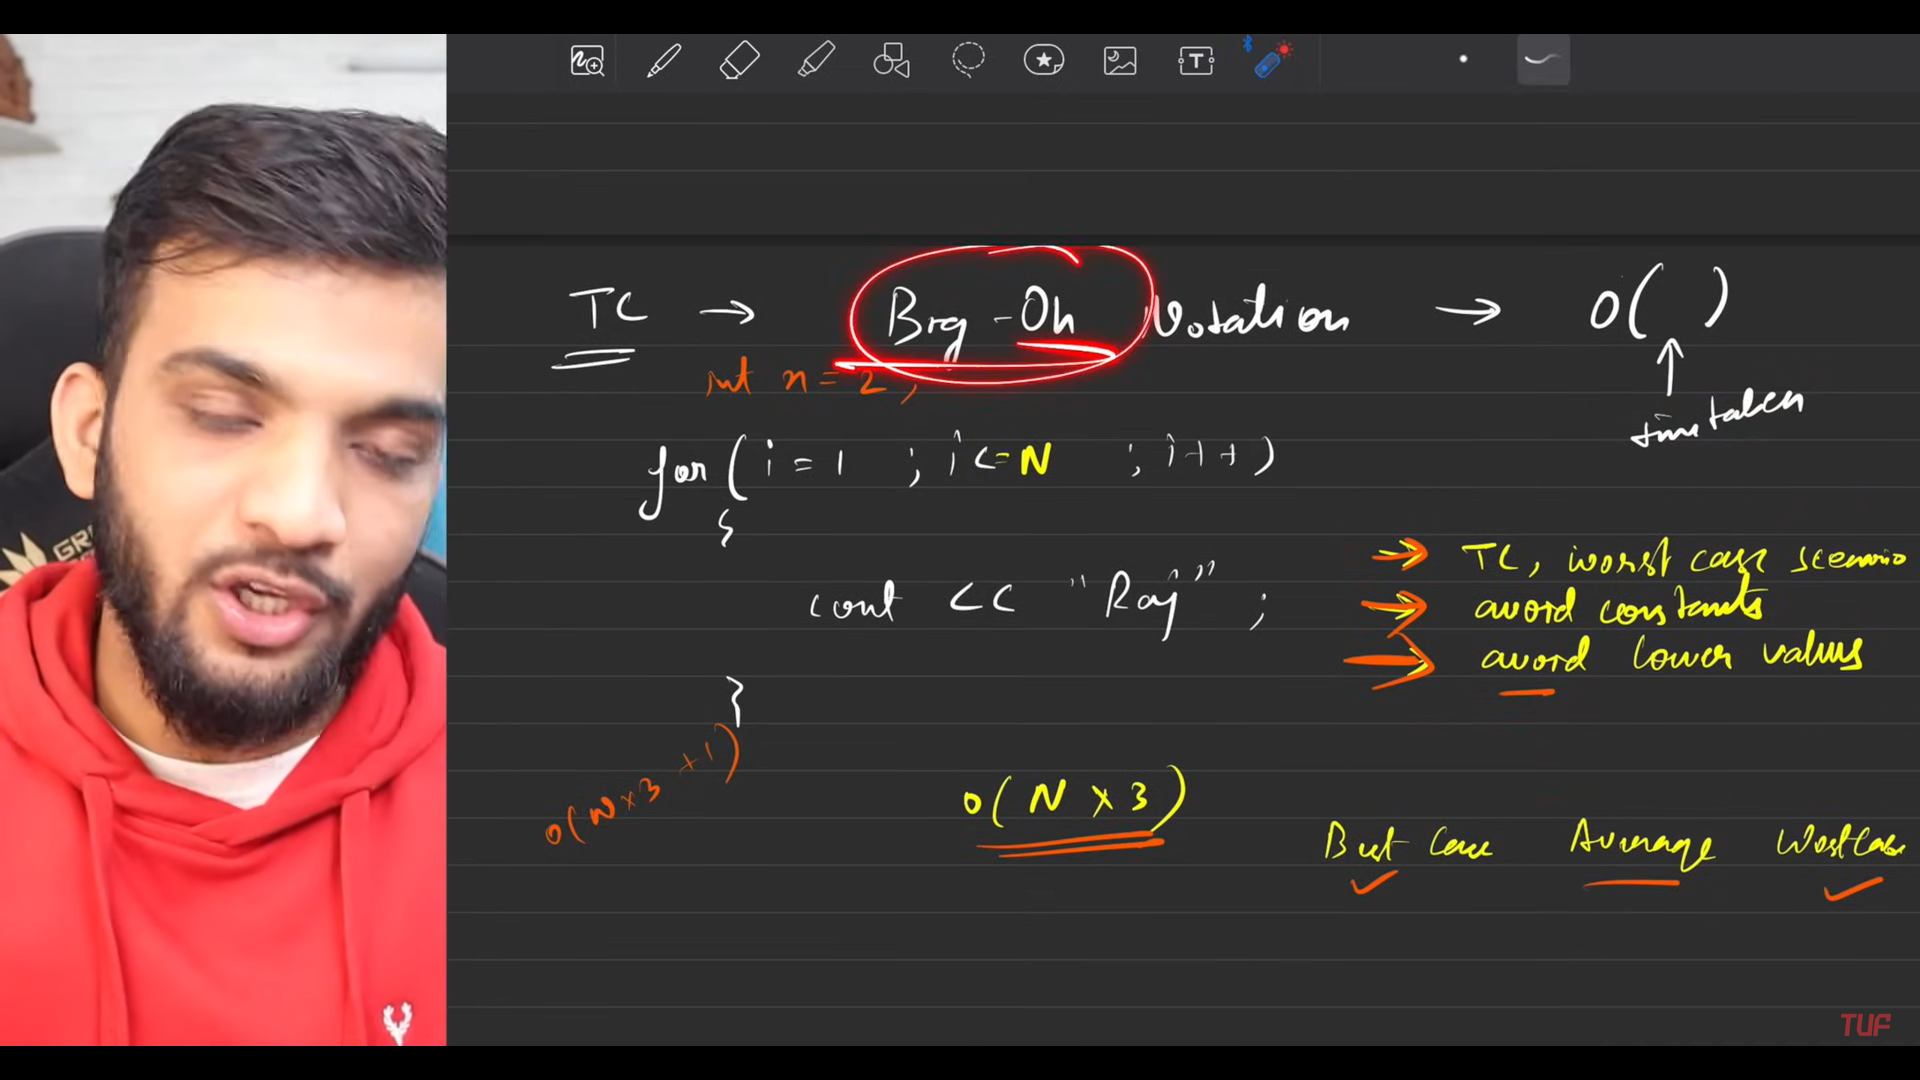 TC → Big-Oh Notation → O( )
int n = 2;
time taken
for(i = 1 ; i <= N ; i++)
{
cout << "Raj" ;
}
→ TC, worst case scenario
→ avoid constants
→ avoid lower values
O(N x 3 + 1)
O(N x 3)
Best Case Average Worst Case
GR
TUF